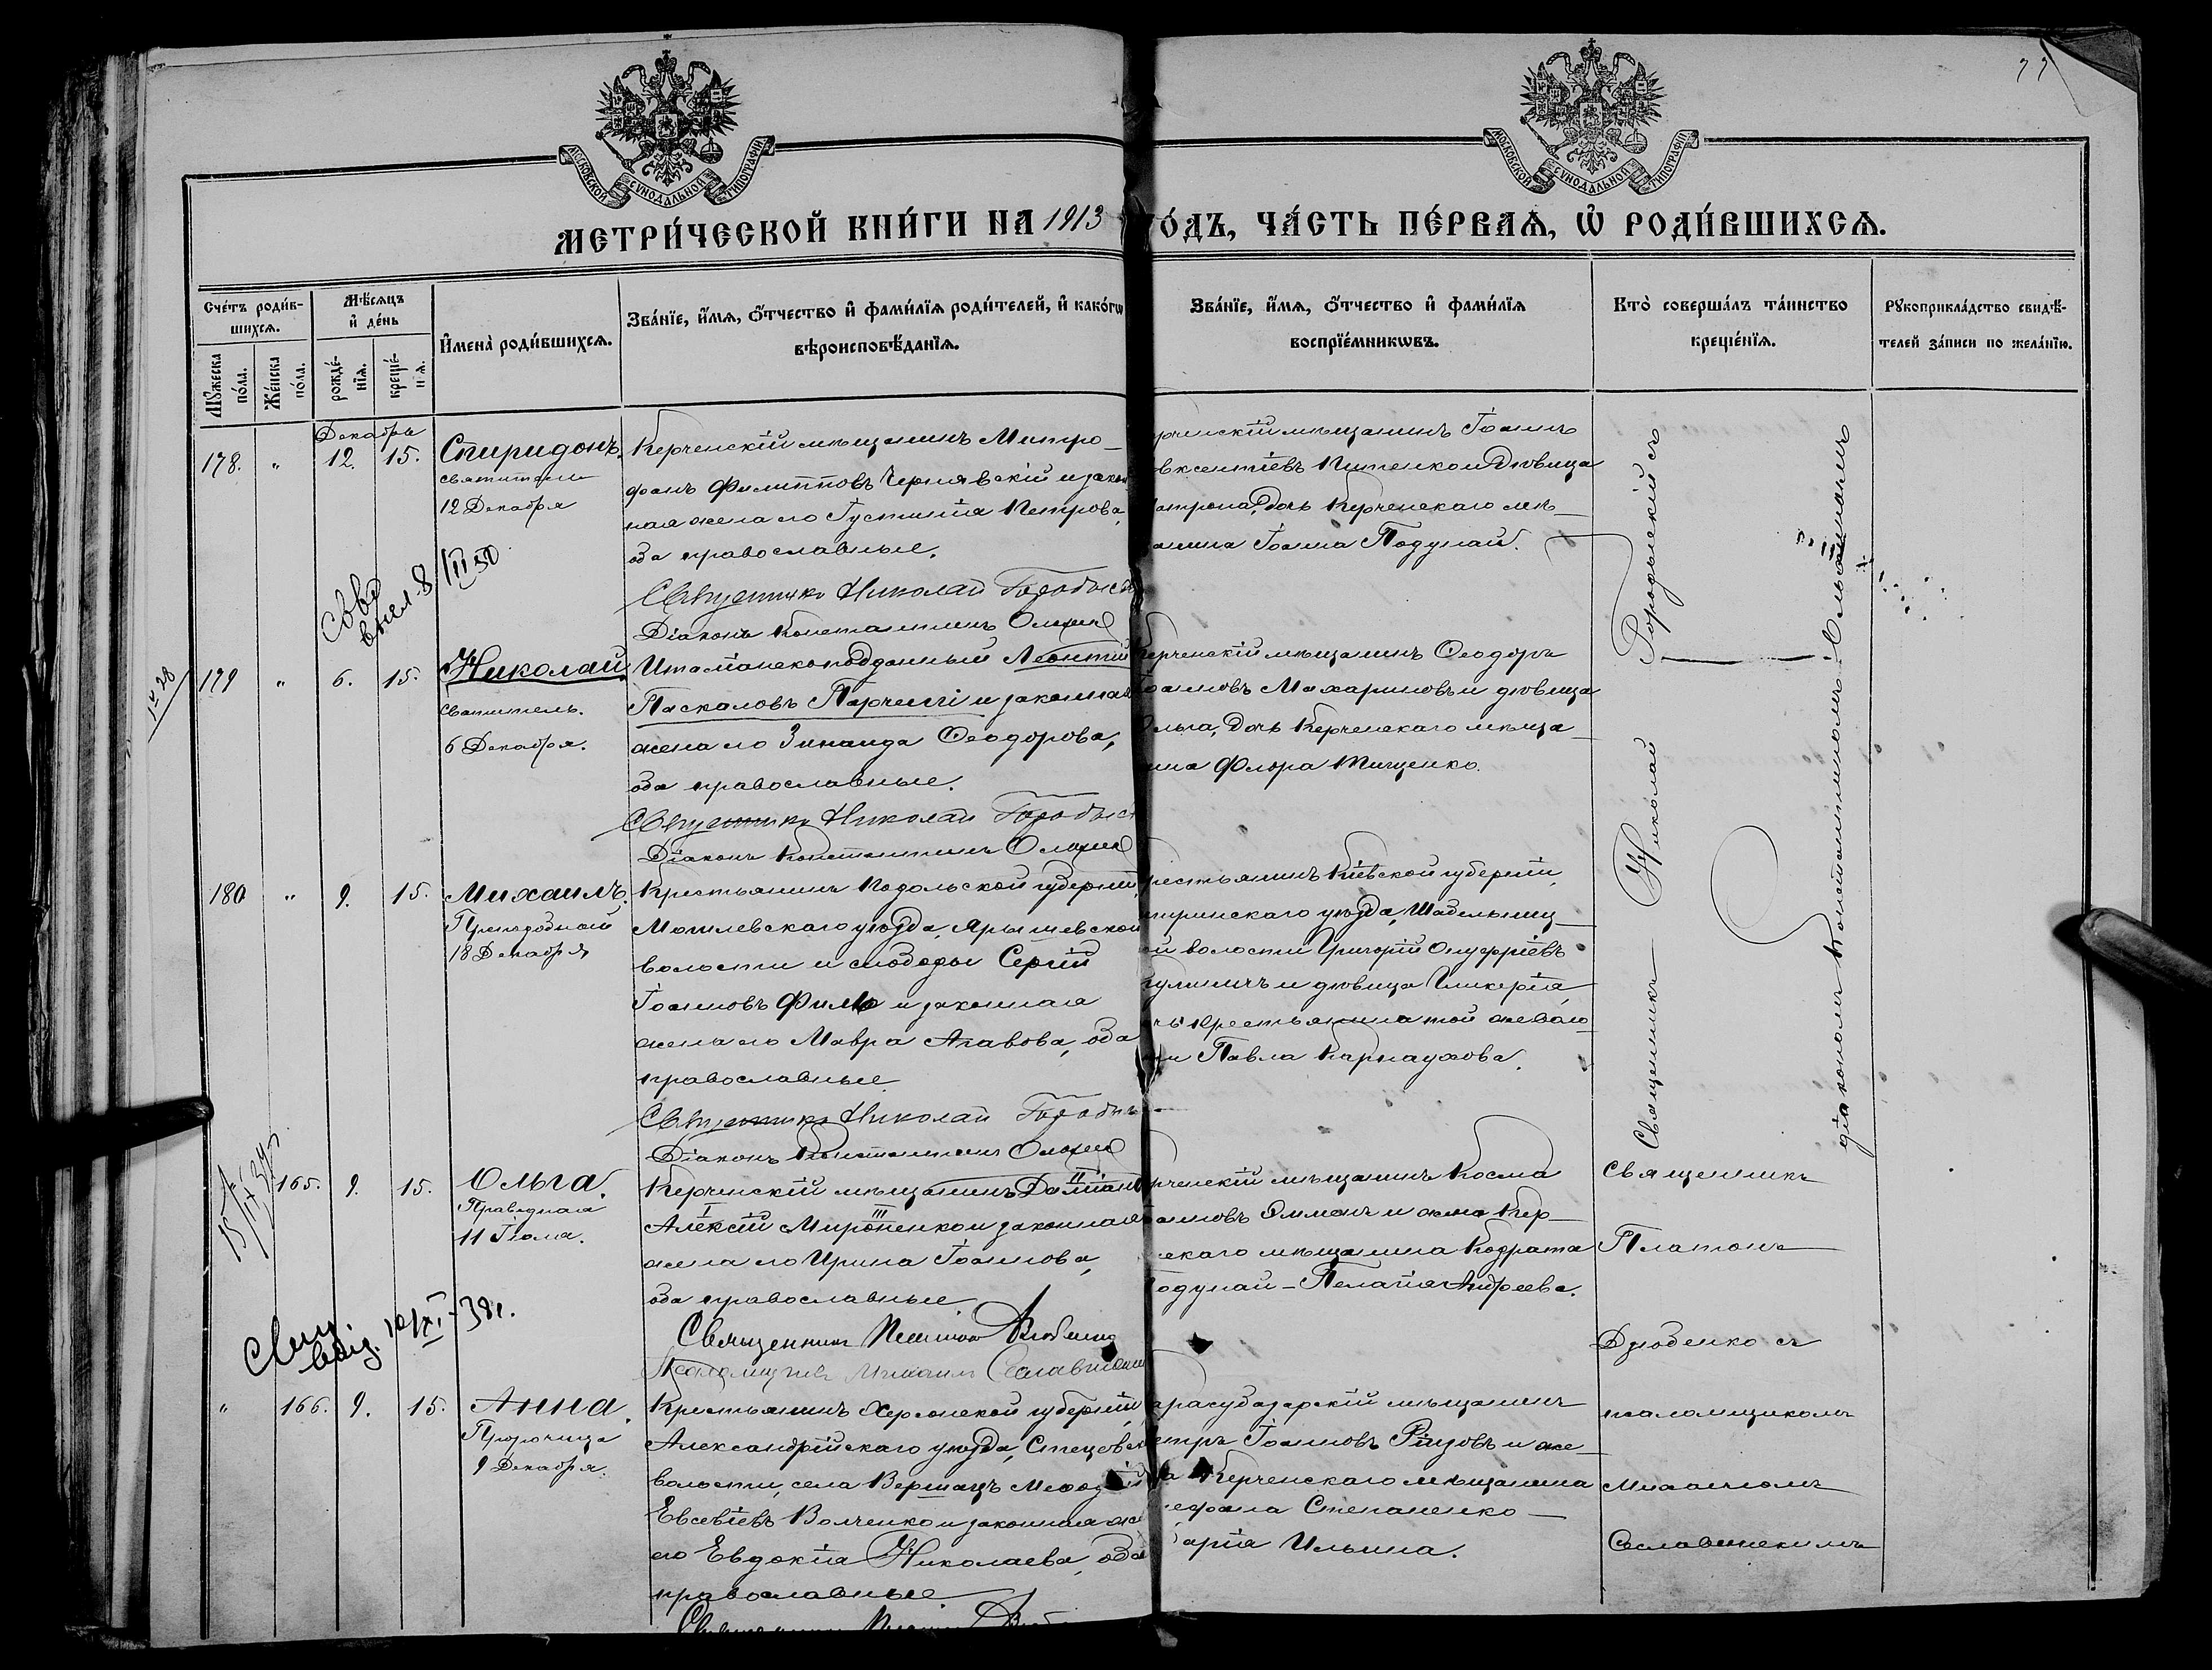 МОСКОВСКОЙ СѴНОДАЛЬНОЙ ТИПОГРАФІИ
МОСКОВСКОЙ СѴНОДАЛЬНОЙ ТИПОГРАФІИ
МЕТРИ́ЧЕСКОЙ КНИ́ГИ НА 1913 О́ДЪ, ЧА́СТЬ ПЕ́РВАѦ, Ѡ҆ РОДИ́ВШИХСѦ.
Сче́тъ роди́в-
шихсѧ.
Мꙋ́жеска по́ла.
Же́нска по́ла.
Мѣ́сѧцъ
и҆ де́нь
рожде́-
нїѧ.
креще́-
нїѧ.
И҆мена̀ роди́вшихсѧ.
Зва́нїе, и҆́мѧ, ѻ҆́тчество и҆ фами́лїѧ роди́телей, и҆ како́гѡ
вѣроисповѣ́данїѧ.
Зва́нїе, и҆́мѧ, ѻ҆́тчество и҆ фами́лїѧ
воспрїе́мникѡвъ.
Кто̀ соверша́лъ та́инство
креще́нїѧ.
Рꙋкоприкла́дство свидѣ́-
телей за́писи по жела́нїю.
Декабрь
178. " 12. 15. Спиридонъ.
святителя
12 Декабря
Керченскій мѣщанинъ Митро-
фанъ Филипповъ Чернявскій и закон
ная жена его Іустинія Петрова,
оба православные.
Священникъ Николай Городыск
Діаконъ Константинъ
рченскій мѣщанинъ Іоаннъ
вксентіевъ Кипенко и дѣвица
атрона, дочь Керченскаго мѣ-
анина Іоанна Подунай.
8/III 50
179 " 6. 15. Николай.
Святитель.
6 Декабря.
Италіанскоподданный Леонтій
Паскаловъ Парчелли и законная
жена его Зинаида Ѳеодорова,
оба православные.
Священникъ Николай Городыск
Діаконъ Константинъ
ерченскій мѣщанинъ Ѳеодоръ
оанновъ Махариновъ и дѣвица
Ольга, дочь Керченскаго мѣща
ина Флора Тищенко.
180 " 9. 15. Михаилъ.
Преподобный
18 Декабря
Крестьянинъ Подольской губерніи,
Могилевскаго уѣзда, Ярышевской
волости и слободы Сергій
Іоанновъ и законная
жена его Мавра Агавова, оба
православные
Священникъ Николай Городыск
Діаконъ Константинъ
рестьянинъ Кіевской губерніи,
уѣзда,
ой волости Григорій Онуфріевъ
и дѣвица Гликерія,
чь крестьянина той же воло
ти Павла Карнаухова.
Священникъ Николай Городыскій съ
діакономъ Константиномъ
165. 9. 15. Ольга.
Праведная
11 Іюля.
Керченскій мѣщанинъ Даміанъ
Алексій Мироненко и законная
жена его Ирина Іоаннова,
оба православные
Священникъ Платонъ
Псаломщикъ Михаилъ
рченскій мѣщанинъ Косма
анновъ и жена Кер-
скаго мѣщанина Кодрата
одунай - Пелагія Андреева.
Священникъ
Платонъ
Дзюбенко съ
псаломщикомъ
Михаиломъ
" 166. 9. 15. Анна.
Пророчица
9 Декабря.
Крестьянинъ Херсонской губерніи,
Александрійскаго уѣзда,
волости, села Вершацъ
Евсевіевъ Волченко и законная же
его Евдокія Николаева, оба
православные
арасубазарскій мѣщанинъ
етръ Іоанновъ и же-
а Керченскаго мѣщанина
тефана Степаненко -
арія Ильина.